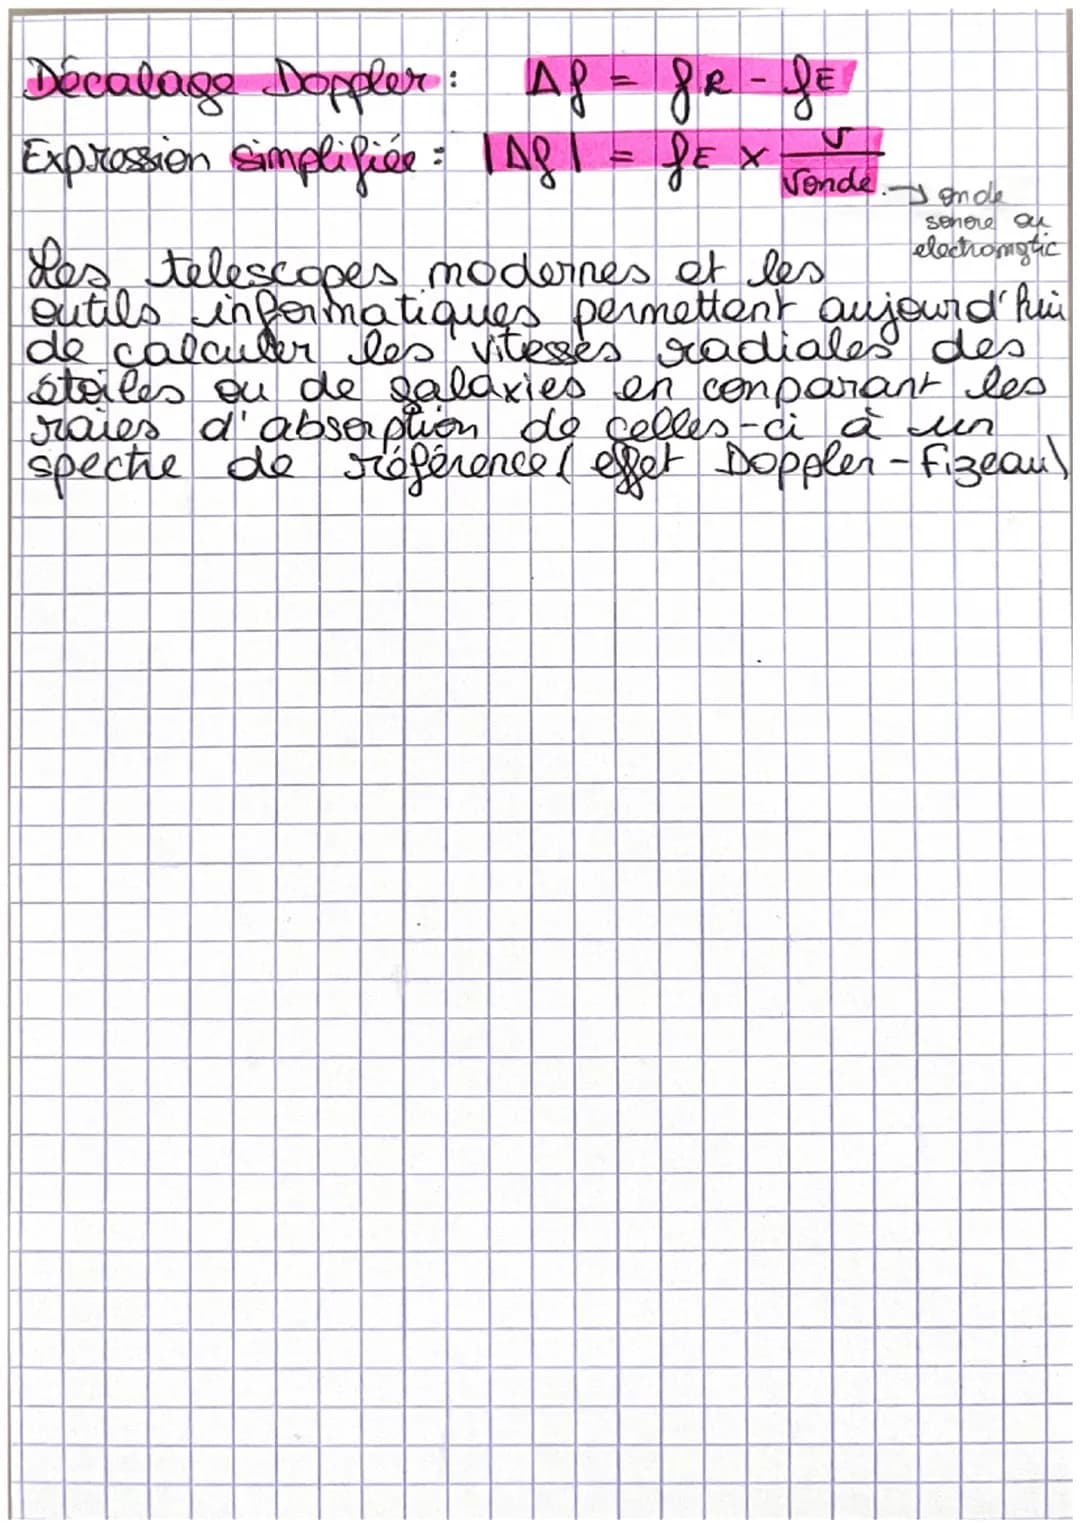 Décalage Doppler : Δf = fR - fE
Expression simplifiée : |Δf| = fE × v / vonde. → onde
sonore ou
electromgtic
Les telescopes modernes et les
outils informatiques permettent aujourd'hui
de calculer les vitesses radiales des
étoiles ou de galaxies en conparant les
raies d'absorption de celles-ci à un
spectre de référence ( effet Doppler - Fizeau)